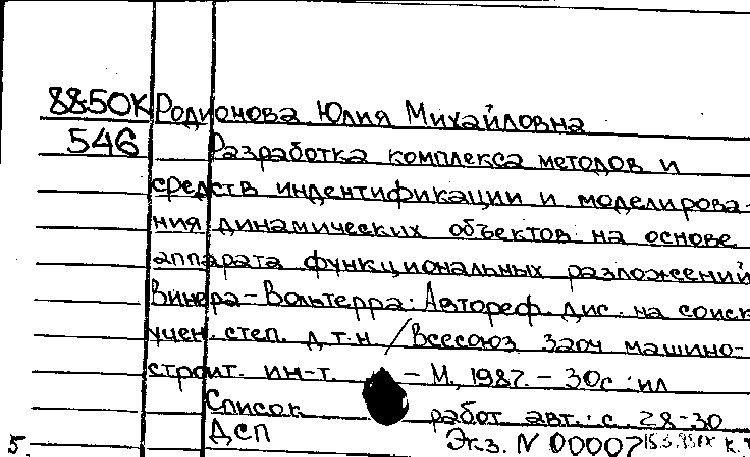 8850К Родионова Юлия Михайловна
546 Разработка комплекса методов и
средств индентификации и моделирова-
ния динамических объектов на основе
аппарата функциональных разложений
Винера-Вольтерра: Автореф. дис. на соиск
учен. степ. д.т.н / Всесоюз. заоч машино-
строит. ин-т. - М., 1987. - 30с.: ил
Список работ авт.: с. 28-30
ДСП Экз. N 00007
5.